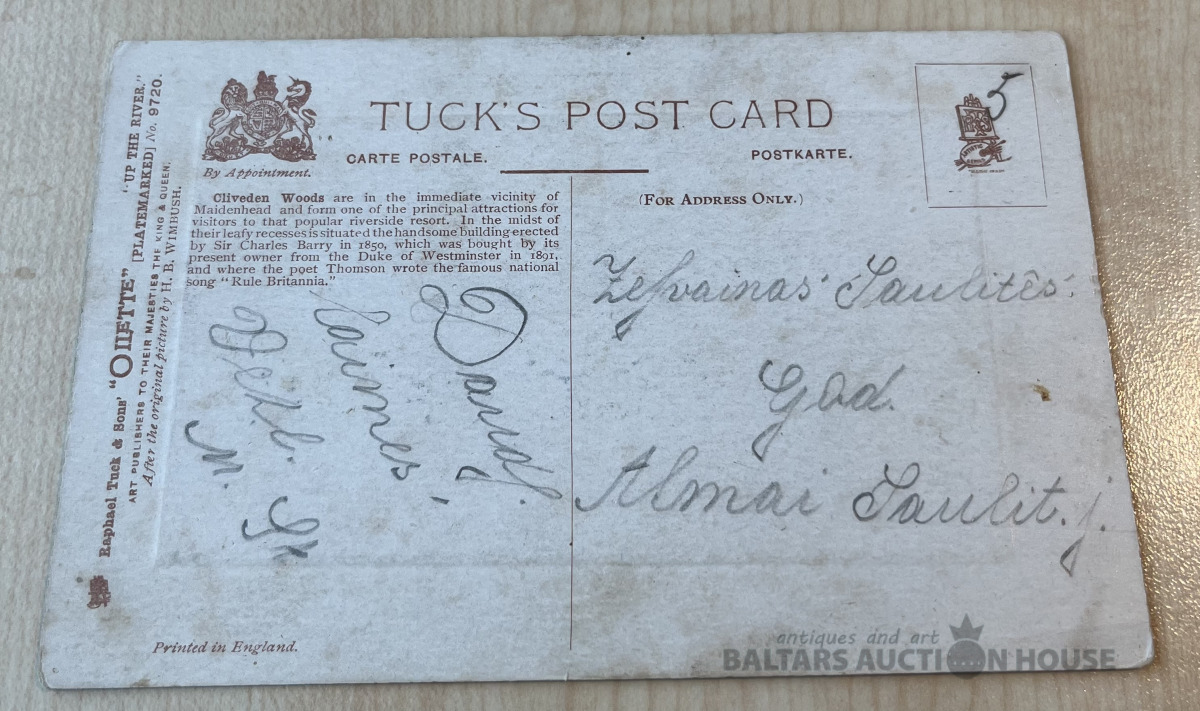 TUCK'S POST CARD
CARTE POSTALE.
POSTKARTE.
By Appointment.
(FOR ADDRESS ONLY.)
Raphael Tuck & Sons' "OILETTE" [PLATEMARKED] "UP THE RIVER." No. 9720.
ART PUBLISHERS TO THEIR MAJESTIES THE KING & QUEEN.
After the original picture by H. B. WIMBUSH.
Cliveden Woods are in the immediate vicinity of
Maidenhead and form one of the principal attractions for
visitors to that popular riverside resort. In the midst of
their leafy recesses is situated the handsome building erected
by Sir Charles Barry in 1850, which was bought by its
present owner from the Duke of Westminster in 1891,
and where the poet Thomson wrote the famous national
song "Rule Britannia."
Daudz
laimes
5
Saulītes
God.
Almai Saulit. j.
Printed in England.
antiques and art
BALTARS AUCTION HOUSE